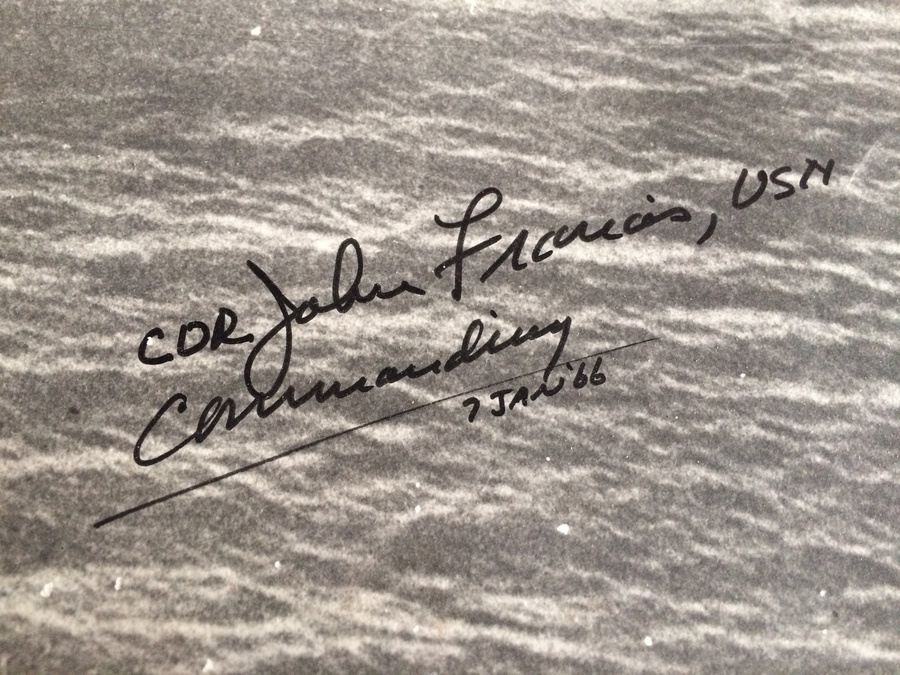 CDR John Francis, USN
Commanding
7 JAN '66